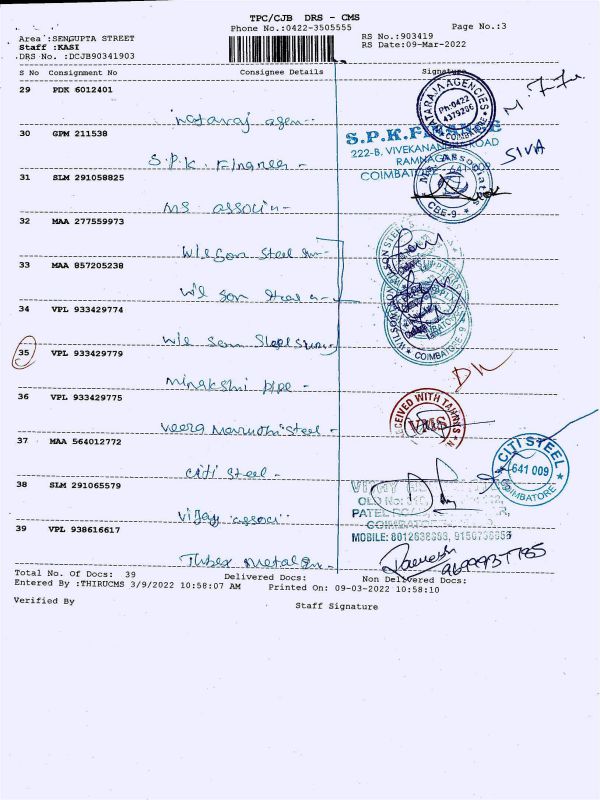 TPC/CJB DRS - CMS
Phone No.:0422-3505555
Page No.:3
Area :SENGUPTA STREET
Staff :KASI
DRS No. :DCJB90341903
RS No.:903419
RS Date:09-Mar-2022
S No Consignment No Consignee Details Signature
29 PDK 6012401
Nataraj agen
NATARAJA AGENCIES
Ph:0422
4379206
COIMBATORE
30 GPM 211538
S.P.K. Finance -
S.P.K.FINANCE
222-B, VIVEKANANDA ROAD
RAMNAGAR
COIMBATORE - 641 009
SIVA
31 SLM 291058825
MS associ -
Ms Associates
CBE-9
32 MAA 277559973
Wilson Steel
33 MAA 857205238
Wilson Steel
34 VPL 933429774
Wilson Steel
WILSON STEEL
COIMBATORE 9
35 VPL 933429779
Minakshi pipe -
36 VPL 933429775
Veera Maruthi Steel -
RECEIVED WITH THANKS
VMS
37 MAA 564012772
Citi Steel -
CITI STEEL
641 009
COIMBATORE
38 SLM 291065579
Vijay associ
VIJAY
OLD No:
PATEL
COIMBATORE
MOBILE: 8012638698,
39 VPL 938616617
Tubex metal
Ramesh
Total No. Of Docs: 39 Delivered Docs: Non Delivered Docs:
Entered By :THIRUCMS 3/9/2022 10:58:07 AM Printed On: 09-03-2022 10:58:10
Verified By
Staff Signature